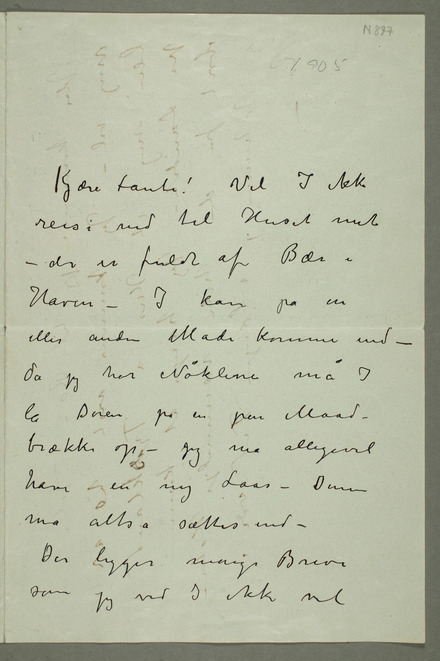 N 897
1905
Kjære Tante! Vil I ikke
reise ned til Huset mit
– der er fuldt af Bær i
Haven – I kan på en
eller anden Made komme ind –
da jeg har Nöklene må I
la Døren på en pen Maade
brække op – jeg ma alligevel
have en ny Laas – Denne
ma altså sættes ind –
Der ligger mange Breve
som jeg ved I ikke vil